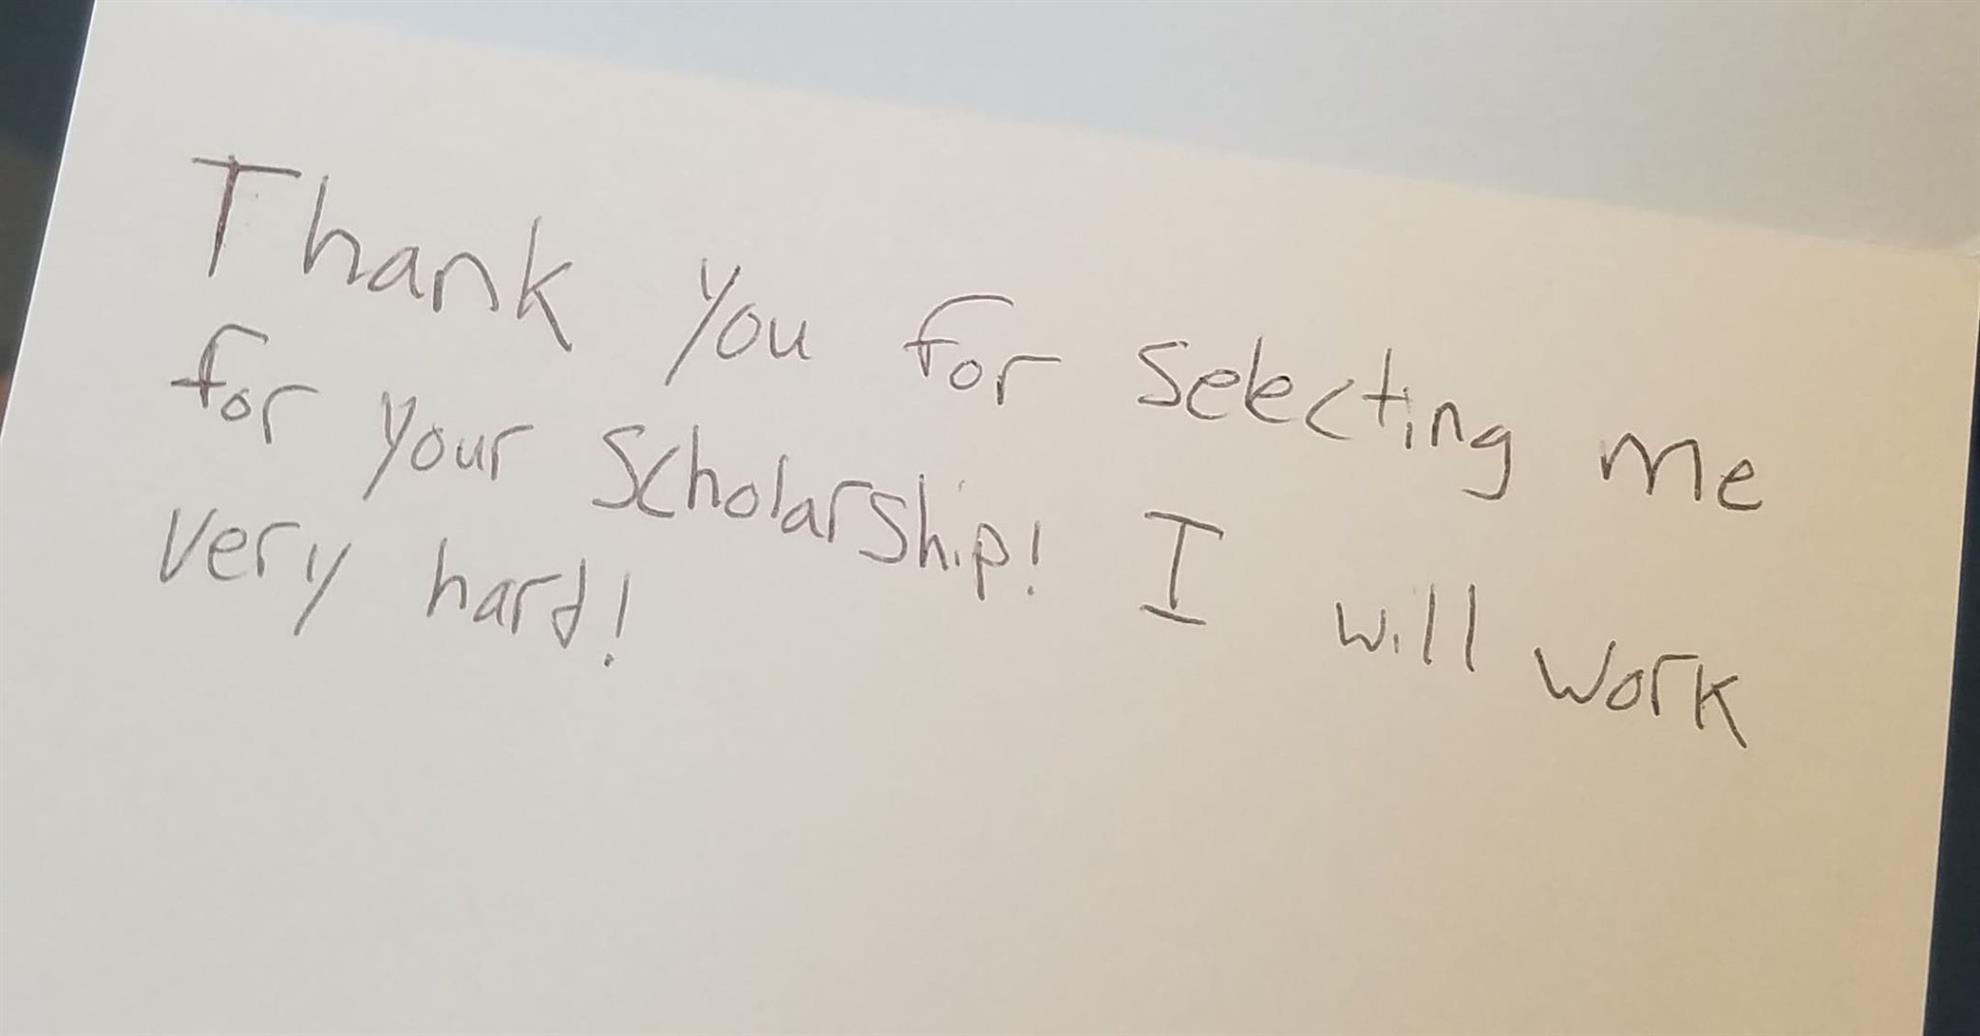 Thank you for selecting me
for your scholarship! I will work
very hard!